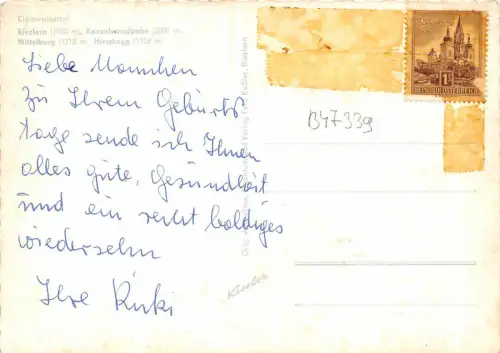 Kleinwalsertal
Riezlern (1100 m), Kanzelwandbahn (2000 m)
Mittelberg (1218 m) Hirschegg (1124 m)
Liebe Mannchen
zu Ihrem Geburts
tage sende ich Ihnen
alles gute, Gesundheit
und ein recht baldiges
wiedersehn
Ihre Kiki
B47339
REPUBLIK ÖSTERREICH
Verlag Franz Keßler, Riezlern
Kessler